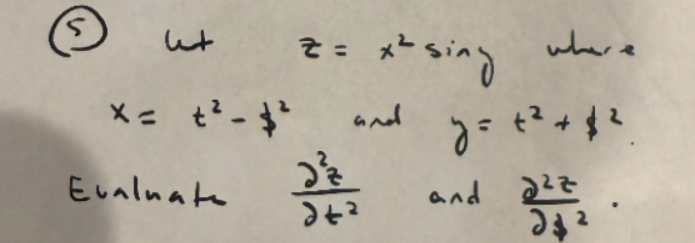 ⑤ let z = x² sin y where
x = t² - $² and y = t² + $².
Evaluate ∂²z/∂t² and ∂²z/∂$².